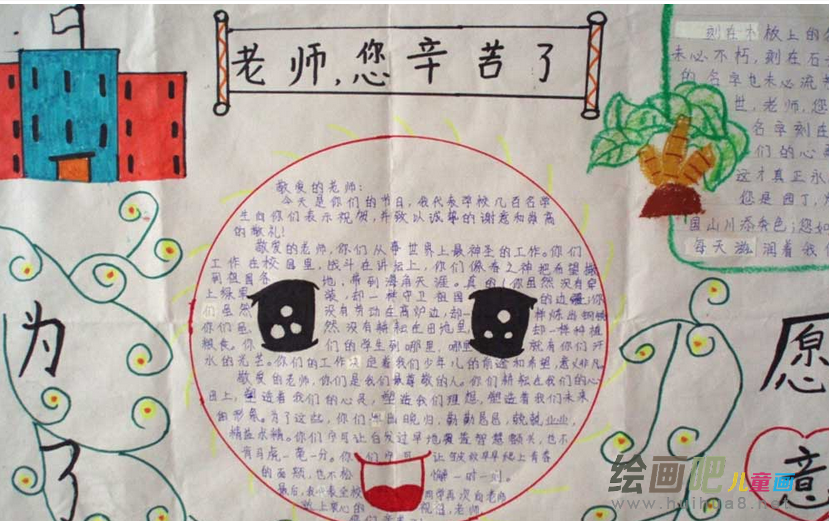 老师,您辛苦了
敬爱的老师:
今天是你们的节日,我代表学校几百名学
生向你们表示祝贺,并致以诚挚的谢意和崇高
的敬礼!
敬爱的老师,你们从事世界上最神圣的工作。你们
工作在校园里,战斗在讲坛上,你们像春之神把希望撒
到祖国各地,希到海角天涯。真的!你虽然没有穿
上绿里装,却一样守卫祖国的边疆;你
们虽然没有劳动在高炉边,却一样炼出钢铁
你们虽然没有耕耘在田地里却一样种植
粮食。你们的学生到哪里,哪里就有你们汗
水的光芒。你们的工作 定着我们少年儿的前途和希望,意义非凡
敬爱的老师,你们是我们最尊敬的人。你们耕耘在我们的心
田上,塑造着我们的心灵,塑造我们理想,塑造着我们未来
的形象。为了这,你们 出晚归,勤勤恳恳,兢兢业业,
精益求精。你们宁可让白发过早地覆盖智慧额头,也不
有马虎一毫一分。你们宁可 让 纹早早爬上青春
的面颊,也不松懈一时一刻。
最后,我代表全校同学再次向老师
致上衷心的祝福,老师,
你们辛苦
刻在木板上的名
未必不朽,刻在石
的名字也未必流
世,老师,您
名字刻在
们的心
这才真正永
您是园丁,为
国山川添秀色;您如
每天滋润着我们
为
了
愿
意
绘画吧儿童画
www.huihua8.net